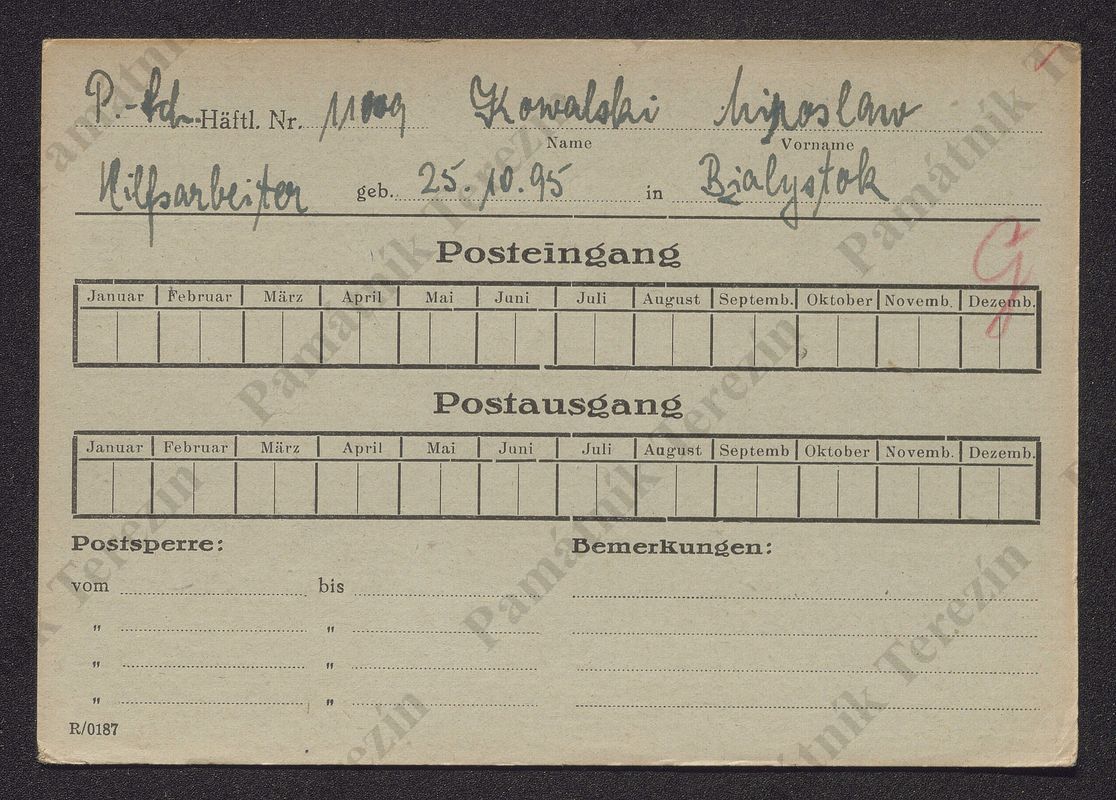 P.-Sch. Häftl. Nr. 11009 Kowalski Miroslaw
Name Vorname
Hilfsarbeiter geb. 25.10.95 in Bialystok
G
Posteingang
Januar Februar März April Mai Juni Juli August Septemb. Oktober Novemb. Dezemb.
Postausgang
Januar Februar März April Mai Juni Juli August Septemb Oktober Novemb. Dezemb.
Postsperre: Bemerkungen:
vom bis
" "
" "
" "
R/0187
Památník Terezín